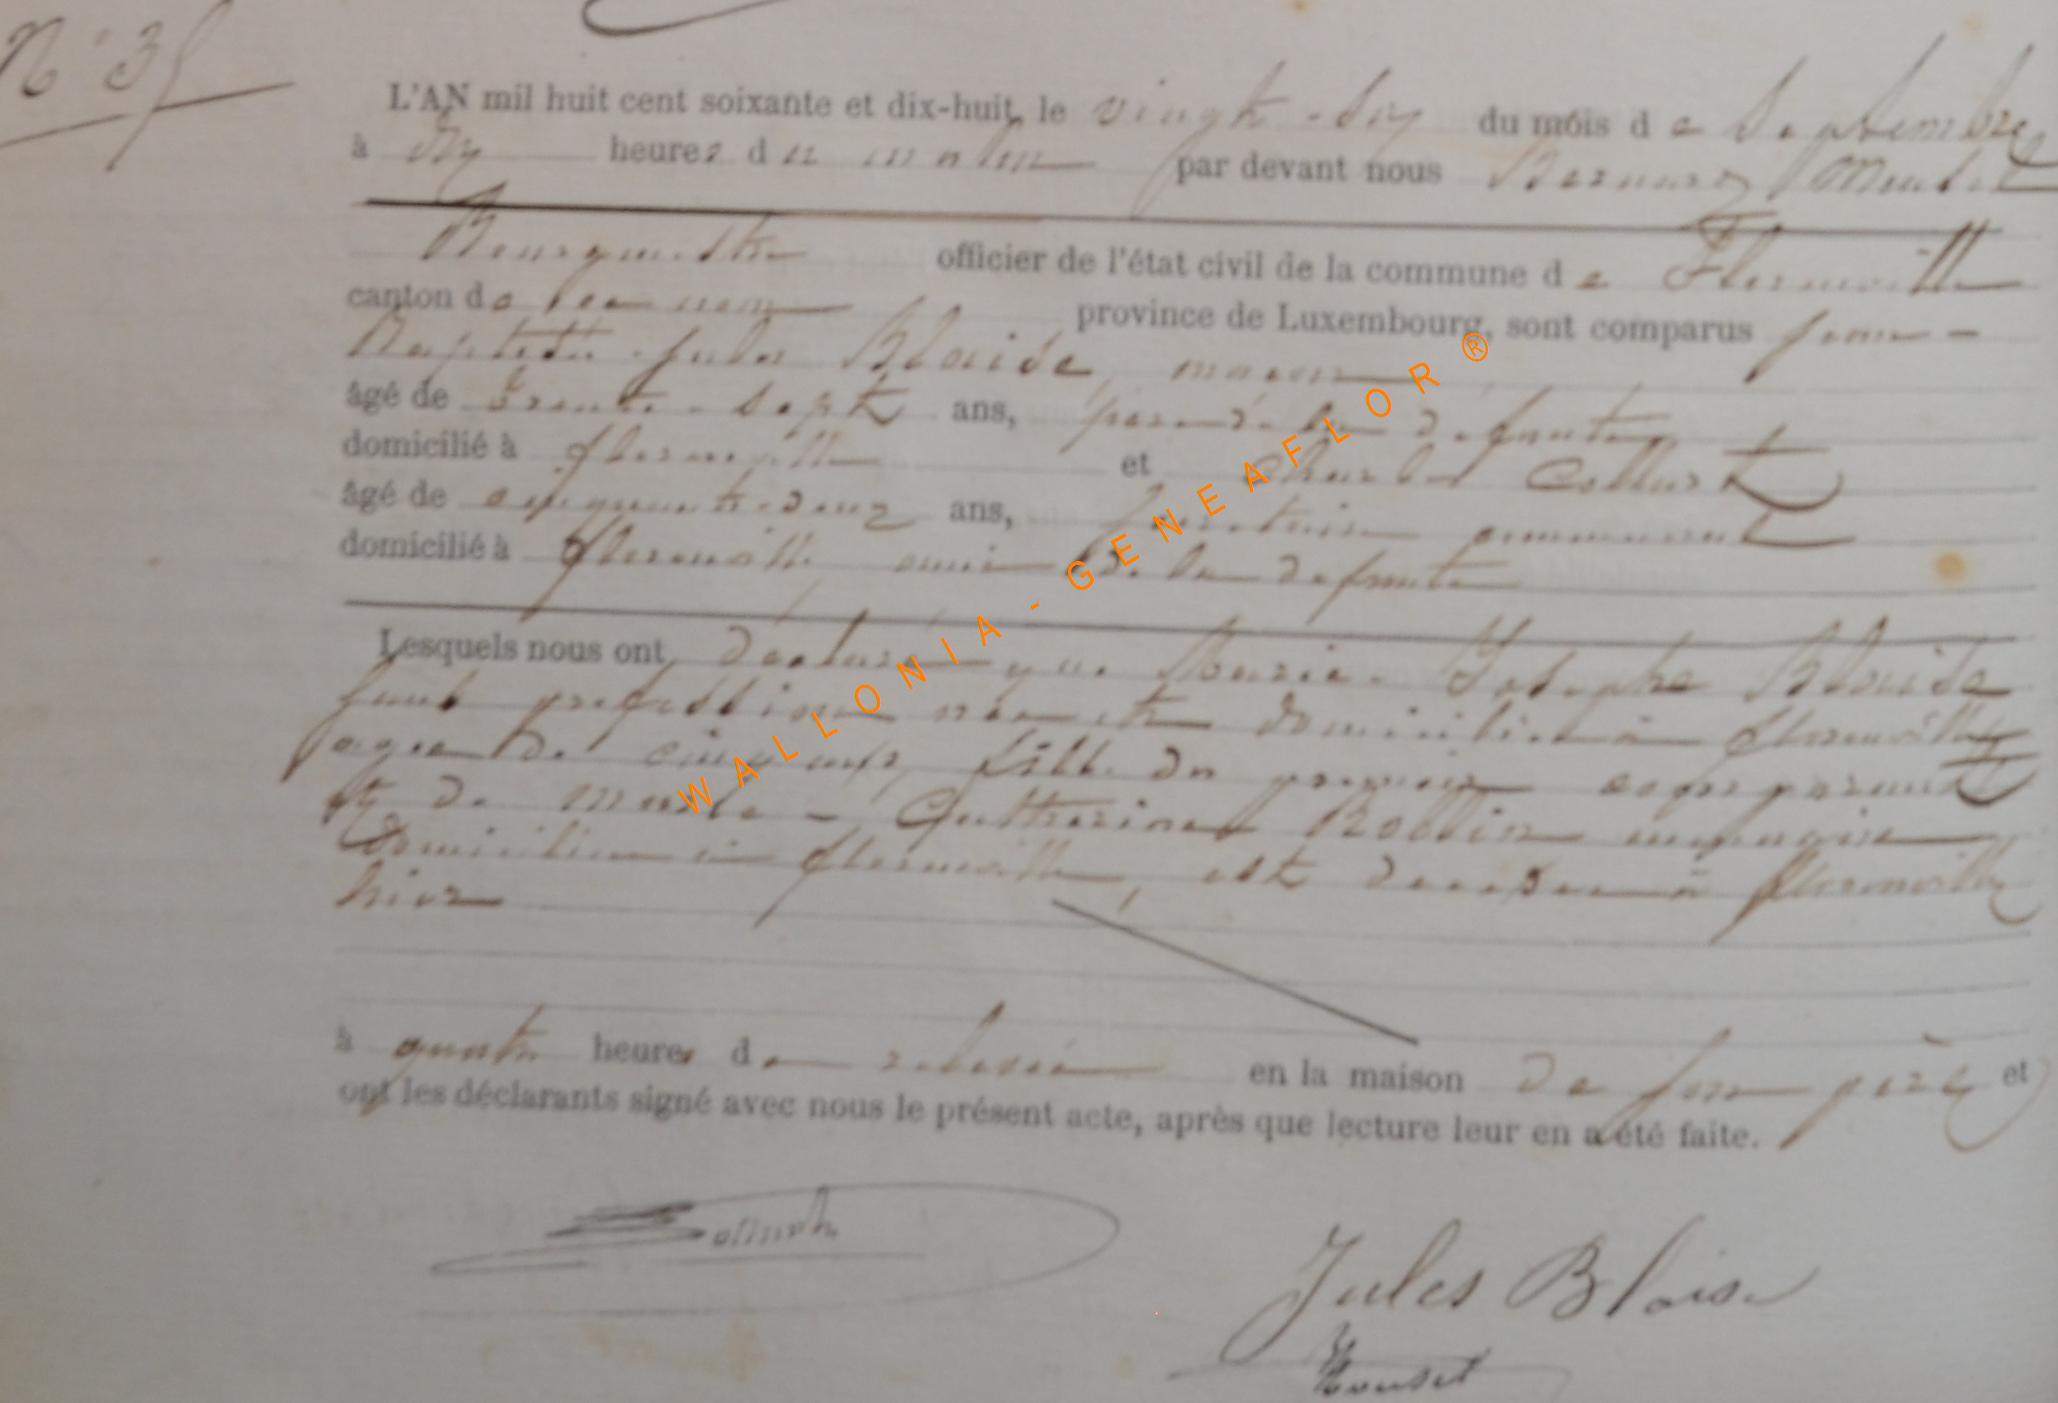 N° 35
L'AN mil huit cent soixante et dix-huit, le vingt-six du mois de Septembre
à dix heures du matin par devant nous Bernard
Bourgmestre officier de l'état civil de la commune de Florenville
canton de ce nom province de Luxembourg, sont comparus Jean-
Baptiste-Jules Blaise, maçon
âgé de trente-sept ans, père de la défunte
domicilié à florenville et Charles Collart
âgé de cinquante-deux ans, secrétaire communal
domicilié à florenville, ami de la défunte
Lesquels nous ont déclaré que Marie-Josephe Blaise
sans profession née et domiciliée à florenville
agée de cinq ans, fille du premier comparant
et de Marie-Catherine Rollin ménagère
domiciliée à florenville, est décédée à florenville
hier
à quatre heures de relevée en la maison de son père et
ont les déclarants signé avec nous le présent acte, après que lecture leur en a été faite.
Jules Blaise
WALLONIA-GENEAFLOR ®